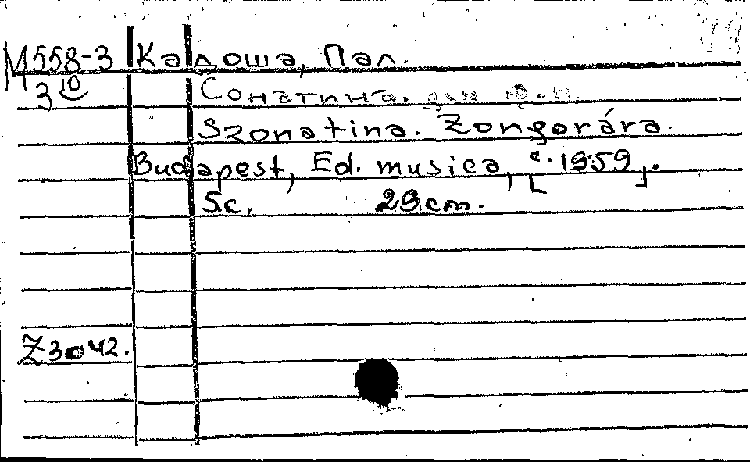 М558-3 Кадоша, Пал.
З 10 Сонатина. для ф.п.
Szonatina. Zongorára.
Budapest, Ed. musica, [c. 1959].
5 с. 29 cm.
Z3042.